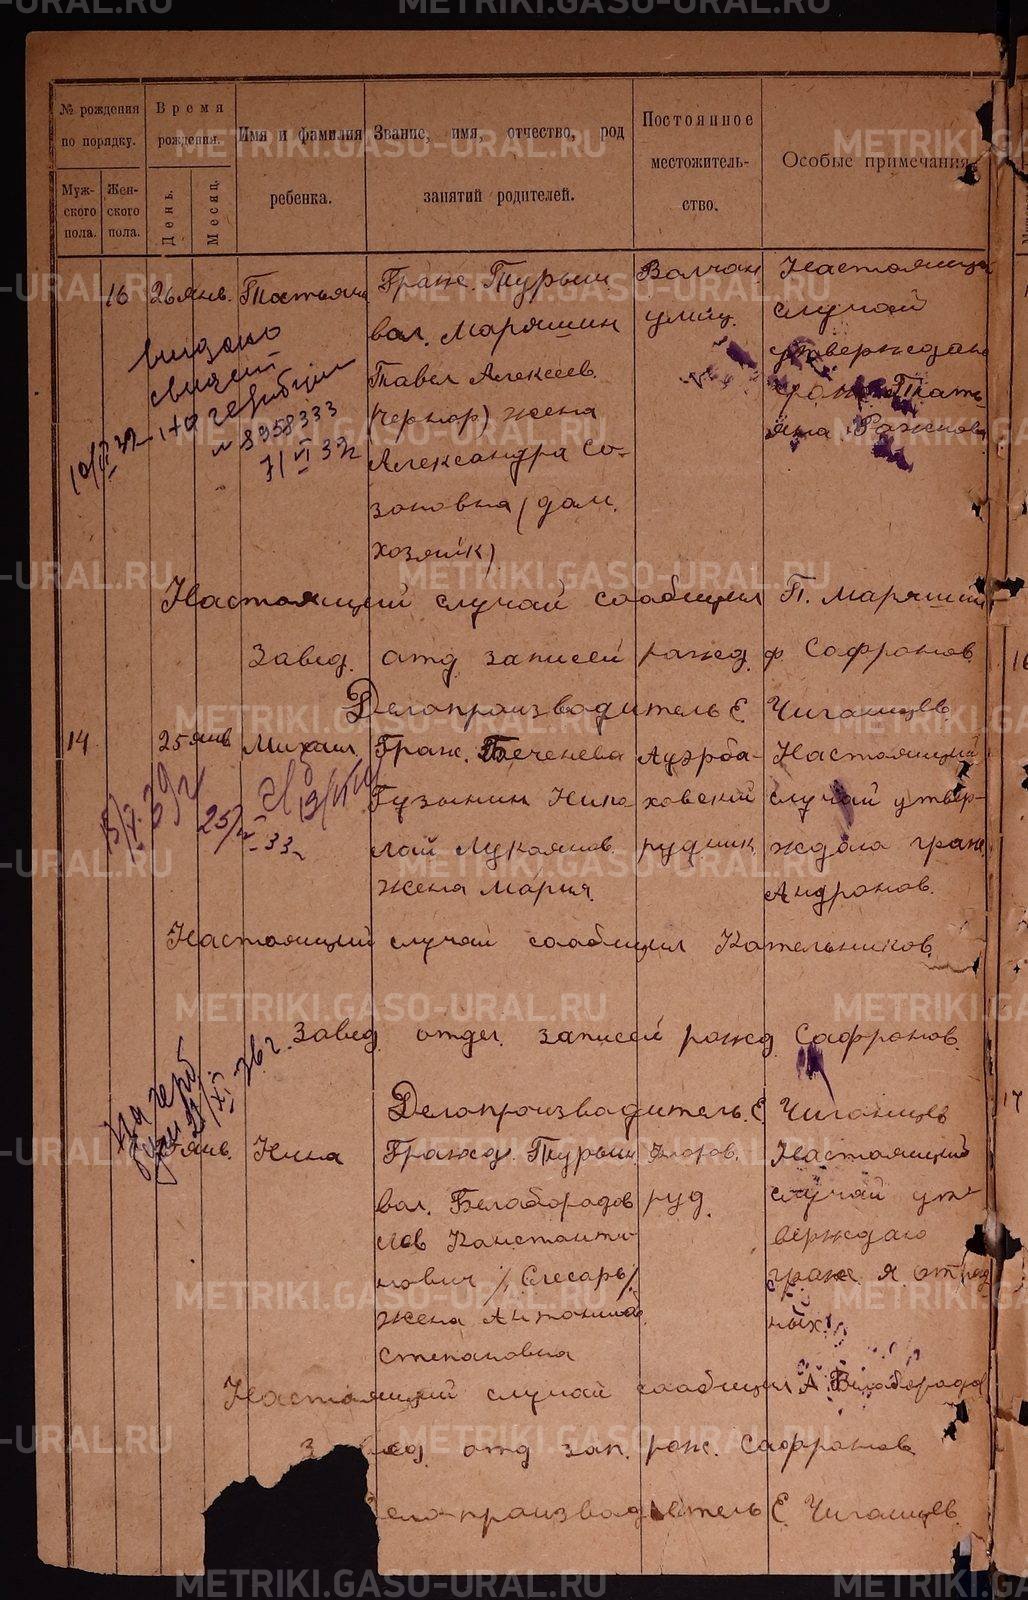 № рождения по порядку.
Время рождения.
Имя и фамилия ребенка.
Звание, имя, отчество, род занятий родителей.
Постоянное местожительство.
Особые примечания.
Мужского пола.
Женского пола.
День.
Месяц.
16 26 янв. Татьяна
Граж. Турьин
вол. Маряшин
Павел Алексеев.
(чернор) жена
Александра Со-
зоновна (дом.
хозяйк)
Волчан.
улиц.
Настоящий
случай
утверждаю
Тать-
яна
выдано
№ 8958333
7/VI 32
Настоящий случай сообщил П. Маряшин
Завед. отд записей рожд. ф Сафронов.
Делопроизводитель Е. Чиганцев.
14 25 янв Михаил
Граж. Печенева
Гузынин Нико
лай Лукоянов.
жена Мария.
Ауэрба-
ховский
рудник.
Настоящий
случай утвер-
ждала граж.
Андронов.
25/VI 33г
Настоящий случай сообщил Котельников.
Завед. отдел. записей рожд Сафронов.
Делопроизводитель. Е. Чиганцев
янв. Нина
Гражд. Турьин
вол. Белобородов
лов Константи
нович /Слесарь/
жена Антонина
Степановна
руд.
Настоящий
случай ут-
верждаю
граж. я. отрад
ных.
Настоящий случай сообщил А Белобородов
Завед. отд зап. рож. Сафронов.
елопроизводитель Е. Чиганцев.
METRIKI.GASO-URAL.RU